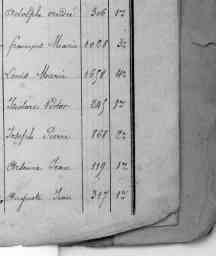 Adolphe André 306 1r
François Marie 1028 3e
Louis Marie 1658 4e
Isidore Victor 245 1r
Joseph Pierre 868 2e
Antoine Jean 119 1r
Auguste Jean 317 1r